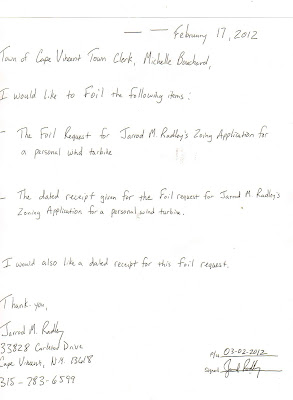 February 17, 2012
Town of Cape Vincent Town Clerk, Michelle Bouchard,
I would like to Foil the following items:
- The Foil Request for Jarrod M. Radley's Zoing Application for
a personal wind turbine
- The dated receipt given for the Foil request for Jarrod M. Radley's
Zoning Application for a personal wind turbine.
I would also like a dated receipt for this foil request.
Thank you,
Jarrod M. Radley
33828 Carleton Drive
Cape Vincent, N.Y. 13618
315-783-6599
03-02-2012
Signed